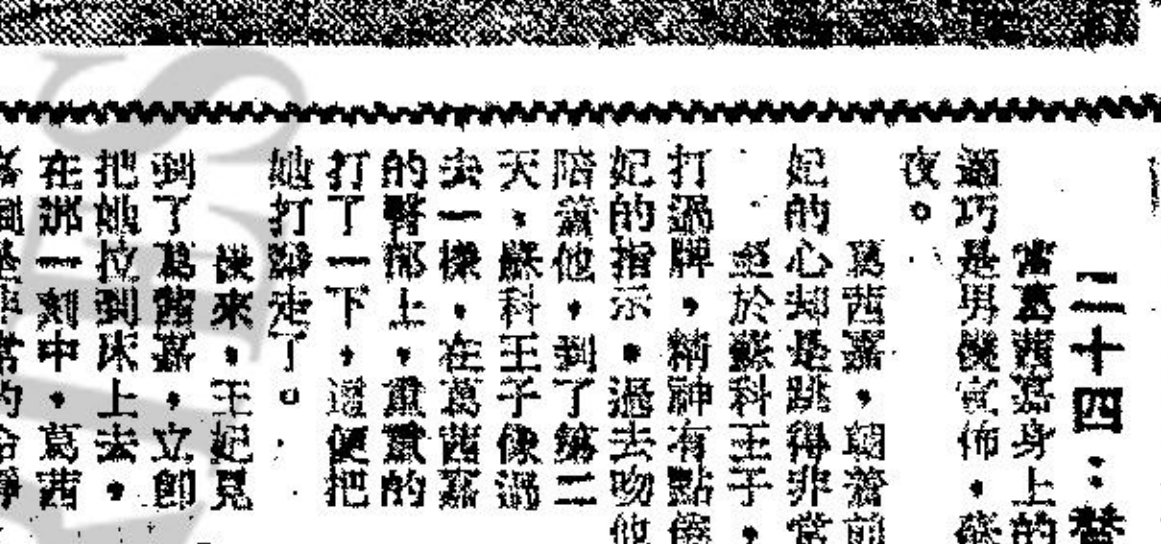 二十四：替
當葛茜嘉身上的
適巧是男僕宣佈，蘇
夜。
葛茜嘉，朝着前
妃的心却是跳得非常
至於蘇科王子，
打過牌，精神有點
妃的指示，過去吻他
陪着他，到了第二
天，蘇科王子像過
去一樣，在葛茜嘉
的臀部上，重重的
打了一下，這便把
她打歸走了。
後來，王妃見
到了葛茜嘉，立卽
把她拉到床上去，
在那一刻中，葛茜